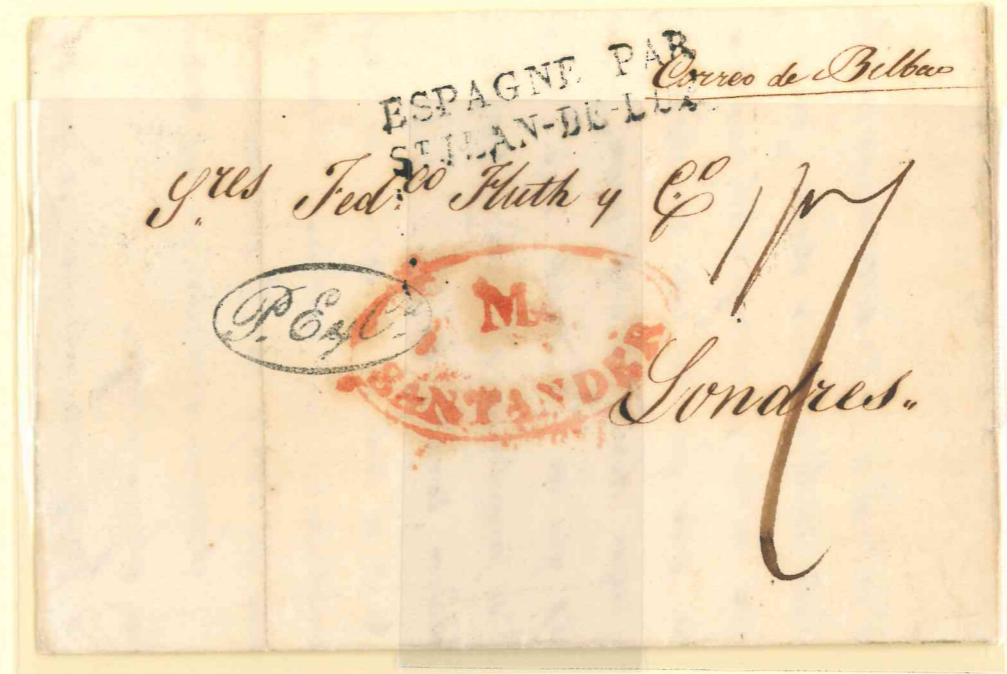 ESPAGNE PAR
ST JEAN-DE-LUZ
Correo de Bilbao
Sres Fedco Huth y Co
P. E y Ca
M.
SANTANDER
Londres.